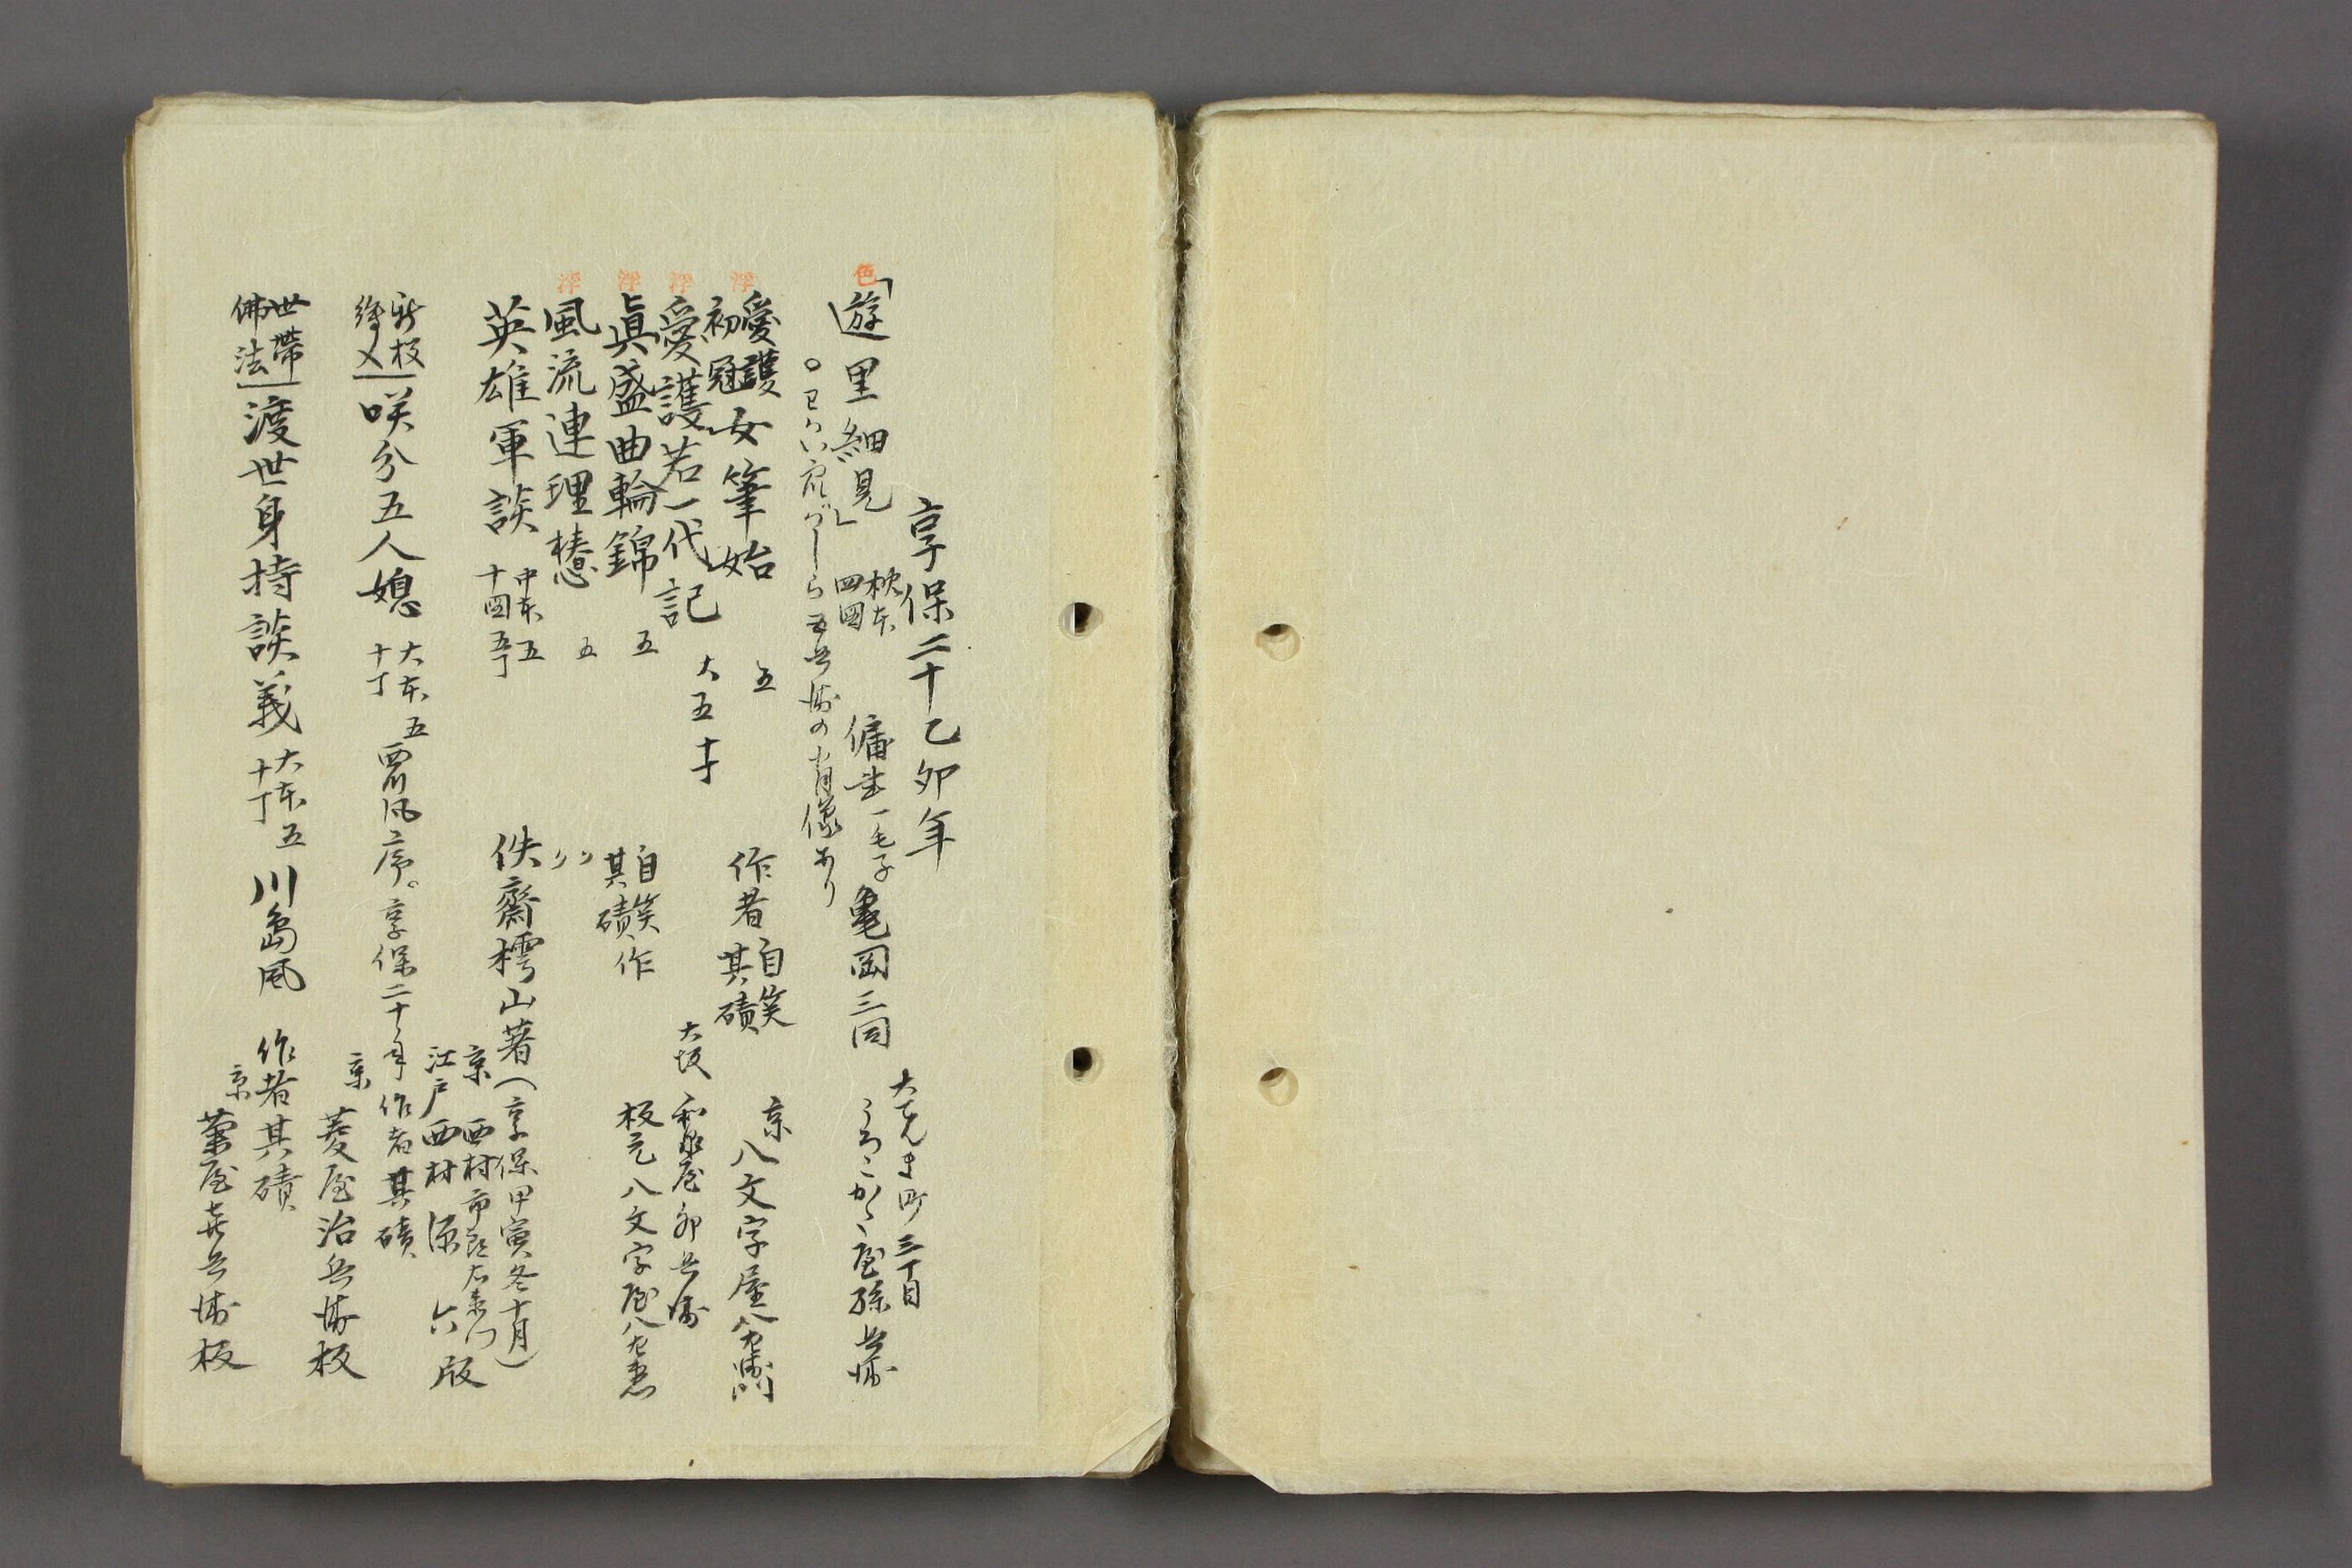 享保二十乙夘年
色
「遊里細見」 枕本 四圖 傭書一毛子 亀岡三同 大てんま町三丁目 うろこかたや 屋孫兵衛
肖像あり
浮
愛護初冠女筆始 五 作者 自笑 其磧 京 八文字屋八左衛門
浮
愛護若一代記 大五 大坂 和泉屋卯兵衛
浮
眞盛曲輪錦 五 自笑 其磧 作 板元八文字屋八左衛門
浮
風流連理椿 五 〃
英雄軍談 中本 五 十四五丁 佚齋樗山著(享保甲寅冬十月) 京 西村市郎右衛門
江戸 西村源六版
咲分五人媳 大本 五 十丁 西川風序。享保二十年 作者其磧
京 菱屋治兵衛板
世帶佛法 渡世身持談義 大本 五 十丁 川島風 作者其磧
京 菊屋喜兵衛板